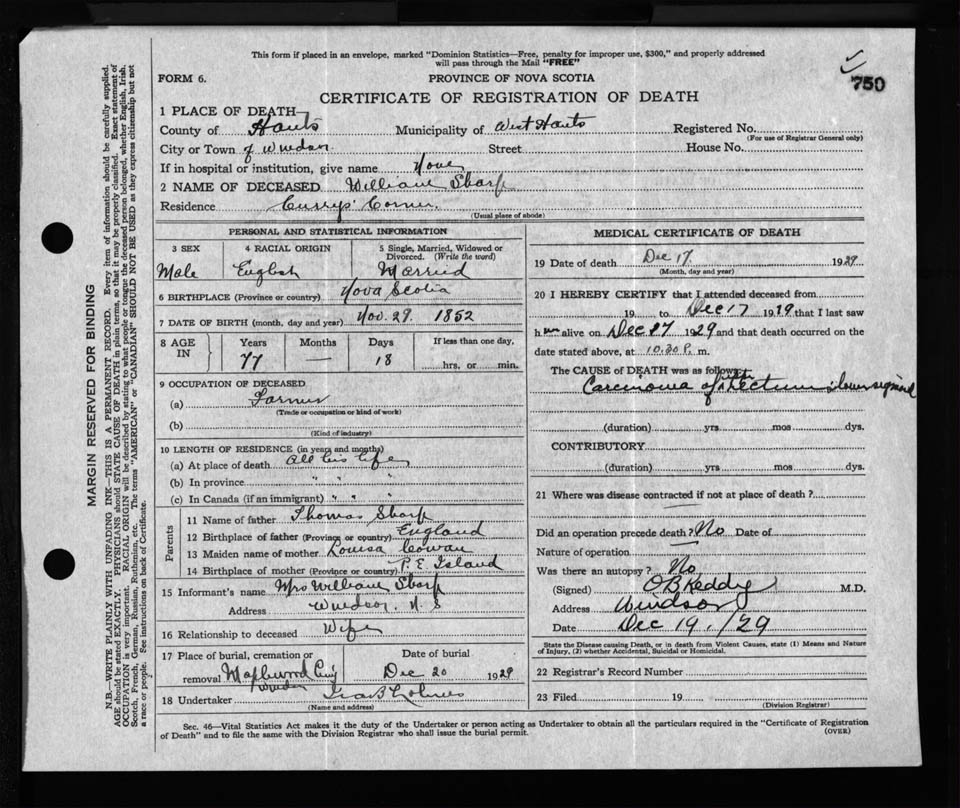 This form if placed in an envelope, marked "Dominion Statistics—Free, penalty for improper use, $300," and properly addressed
will pass through the Mail "FREE"
750
FORM 6.
PROVINCE OF NOVA SCOTIA
CERTIFICATE OF REGISTRATION OF DEATH
1 PLACE OF DEATH
County of Hants Municipality of West Hants Registered No.
(For use of Registrar General only)
City or Town of Windsor Street House No.
If in hospital or institution, give name None
2 NAME OF DECEASED William Sharp
Residence Currys' Corner.
(Usual place of abode)
PERSONAL AND STATISTICAL INFORMATION
3 SEX
Male
4 RACIAL ORIGIN
English
5 Single, Married, Widowed or
Divorced. (Write the word)
Married
6 BIRTHPLACE (Province or country) Nova Scotia
7 DATE OF BIRTH (month, day and year) Nov. 29. 1852
8 AGE
IN
Years
77
Months
—
Days
18
If less than one day,
hrs. or min.
9 OCCUPATION OF DECEASED
(a) Farmer
(Trade or occupation or kind of work)
(b)
(Kind of industry)
10 LENGTH OF RESIDENCE (in years and months)
(a) At place of death All his life
(b) In province " " "
(c) In Canada (if an immigrant) " " "
Parents
11 Name of father Thomas Sharp
12 Birthplace of father (Province or country) England
13 Maiden name of mother Louisa Cowan
14 Birthplace of mother (Province or country) P. E. Island
15 Informant's name Mrs William Sharp
Address Windsor, N. S
16 Relationship to deceased Wife
17 Place of burial, cremation or
removal Maplewood Cemy
Windsor
Date of burial
Dec 20 1929
18 Undertaker
(Name and address)
MEDICAL CERTIFICATE OF DEATH
19 Date of death Dec 17. 1929
(Month, day and year)
20 I HEREBY CERTIFY that I attended deceased from
19 to Dec 17 1929 that I last saw
him alive on Dec 17 1929 and that death occurred on the
date stated above, at 10.30 P. m.
The CAUSE of DEATH was as follows:
Carcinoma of rectum
(duration) yrs mos dys.
CONTRIBUTORY
(duration) yrs mos dys.
21 Where was disease contracted if not at place of death?
Did an operation precede death? No Date of
Nature of operation
Was there an autopsy? No
(Signed) O B Keddy M.D.
Address Windsor
Date Dec 19. /29
State the Disease causing Death, or in death from Violent Causes, state (1) Means and Nature
of Injury, (2) whether Accidental, Suicidal or Homicidal.
22 Registrar's Record Number
23 Filed 19
(Division Registrar)
Sec. 46—Vital Statistics Act makes it the duty of the Undertaker or person acting as Undertaker to obtain all the particulars required in the "Certificate of Registration
of Death" and to file the same with the Division Registrar who shall issue the burial permit.
(OVER)
MARGIN RESERVED FOR BINDING
N.B.—WRITE PLAINLY WITH UNFADING INK—THIS IS A PERMANENT RECORD. Every item of information should be carefully supplied.
AGE should be stated EXACTLY. PHYSICIANS should STATE CAUSE OF DEATH in plain terms, so that it may be properly classified. Exact statement of
OCCUPATION is very important. RACIAL ORIGIN will be described by stating to what people or tongue the deceased person belonged, whether English, Irish,
Scotch, French, German, Russian, Ruthenian, etc. The terms "AMERICAN" or "CANADIAN" SHOULD NOT BE USED as they express citizenship but not
a race or people. See instructions on back of Certificate.